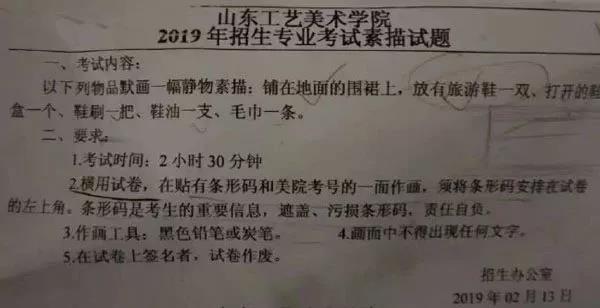 山东工艺美术学院
2019年招生专业考试素描试题
一、考试内容：
以下列物品默画一幅静物素描：铺在地面的围裙上，放有旅游鞋一双、打开的鞋
盒一个、鞋刷一把、鞋油一支、毛巾一条。
二、要求：
1.考试时间：2小时30分钟
2.横用试卷，在贴有条形码和美院考号的一面作画，须将条形码安排在试卷
的左上角。条形码是考生的重要信息，遮盖、污损条形码，责任自负。
3.作画工具：黑色铅笔或炭笔。 4.画面中不得出现任何文字。
5.在试卷上签名者，试卷作废。
招生办公室
2019年02月13日